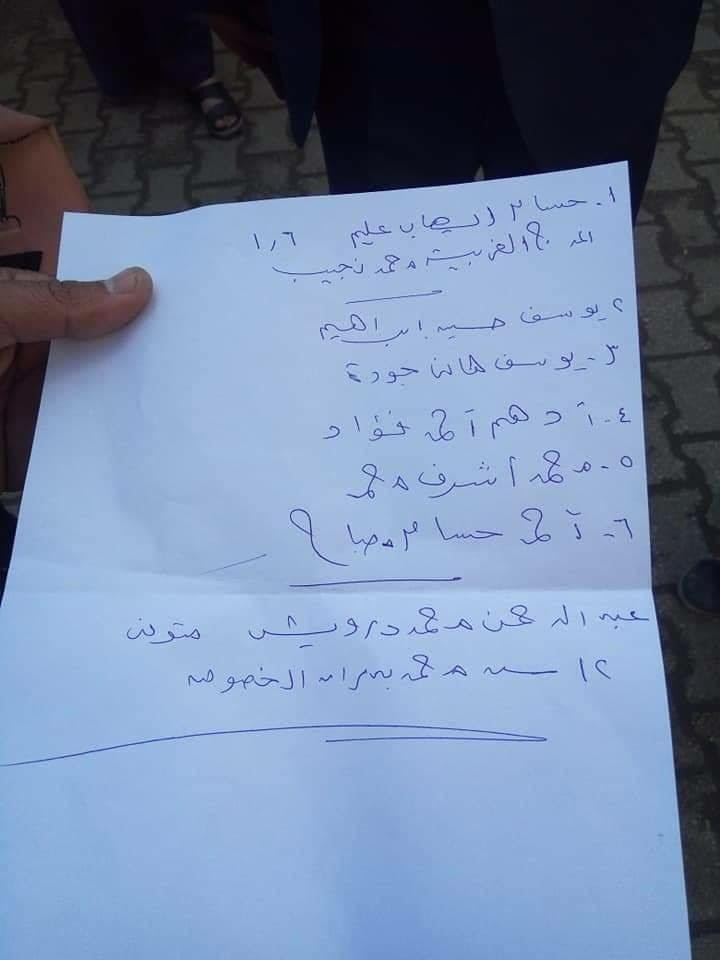 ١- حسام ايهاب عليم ١٦
المرج الغربية محمد نجيب
٢ يوسف حسين ابراهيم
٣- يوسف هانى جودة
٤- آدهم آحمد فؤاد
٥- محمد أشرف محمد
٦- آحمد حسام مصباح
عبد الرحمن محمد درويش متوفى
محمد بدران الخصوص